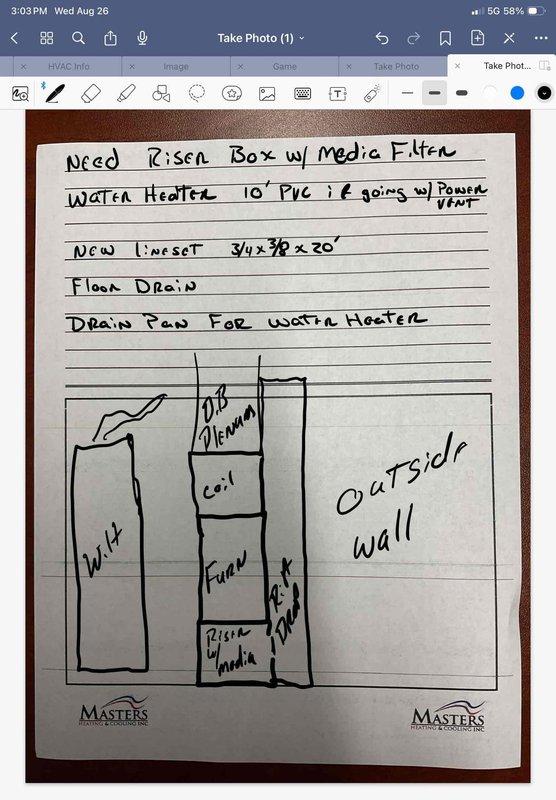 3:03 PM Wed Aug 26
5G 58%
Take Photo (1)
HVAC Info
Image
Game
Take Photo
Take Phot...
NEED RISER BOX w/ MEDIA FILTER
WATER HEATER 10' PVC if going w/ POWER
VENT
NEW LINESET 3/4 x 3/8 x 20'
FLOOR DRAIN
DRAIN PAN FOR WATER HEATER
D.B
PLENUM
COIL
W.H
FURN
R.A
DROP
RISER
w/
media
OUTSIDE
WALL
MASTERS
HEATING & COOLING INC
MASTERS
HEATING & COOLING INC